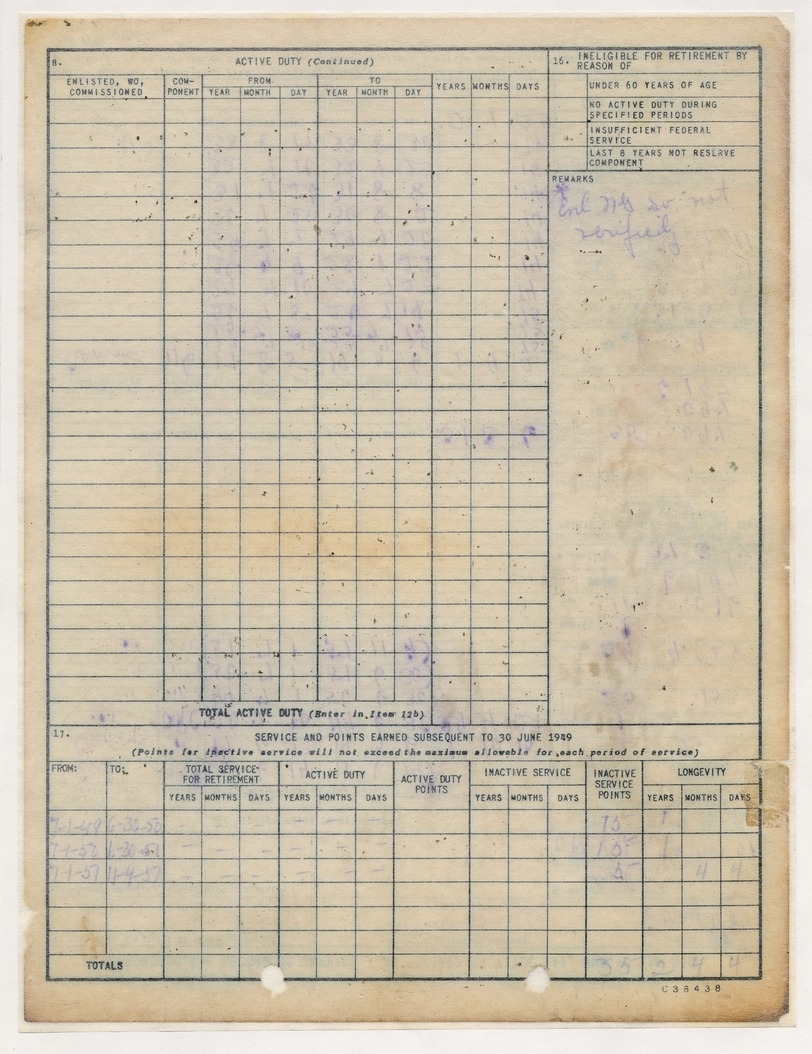 8. ACTIVE DUTY (Continued)
ENLISTED, WO, COMMISSIONED COM- PONENT FROM TO YEARS MONTHS DAYS
YEAR MONTH DAY YEAR MONTH DAY
TOTAL ACTIVE DUTY (Enter in Item 12b)
16. INELIGIBLE FOR RETIREMENT BY
REASON OF
UNDER 60 YEARS OF AGE
NO ACTIVE DUTY DURING
SPECIFIED PERIODS
INSUFFICIENT FEDERAL
SERVICE
LAST 8 YEARS NOT RESERVE
COMPONENT
REMARKS
* Enl NG sv not
verified
17. SERVICE AND POINTS EARNED SUBSEQUENT TO 30 JUNE 1949
(Points for inactive service will not exceed the maximum allowable for each period of service)
FROM: TO: TOTAL SERVICE FOR RETIREMENT ACTIVE DUTY ACTIVE DUTY POINTS INACTIVE SERVICE INACTIVE SERVICE POINTS LONGEVITY
YEARS MONTHS DAYS YEARS MONTHS DAYS YEARS MONTHS DAYS YEARS MONTHS DAYS
7-1-49 6-30-50 - - - - - - 15 1
7-1-50 6-30-51 - - - - - - 15 1
7-1-51 11-4-51 - - - - - - 5 4 4
TOTALS 35 2 4 4
C36438